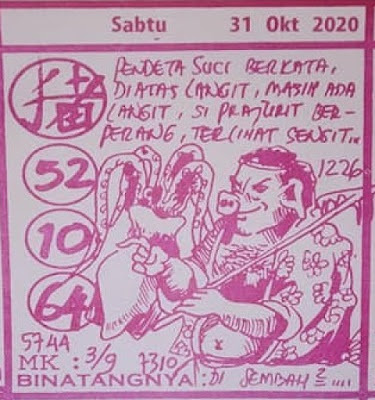 Sabtu 31 Okt 2020
猪
PENDETA SUCI BERKATA,
DIATAS LANGIT, MASIH ADA
LANGIT, SI PRAJURIT BER-
PERANG, TERLIHAT SENGIT...
52
1226
10
64
5744
MK : 3/9 7310
BINATANGNYA : DI SEMBAH 2 ....